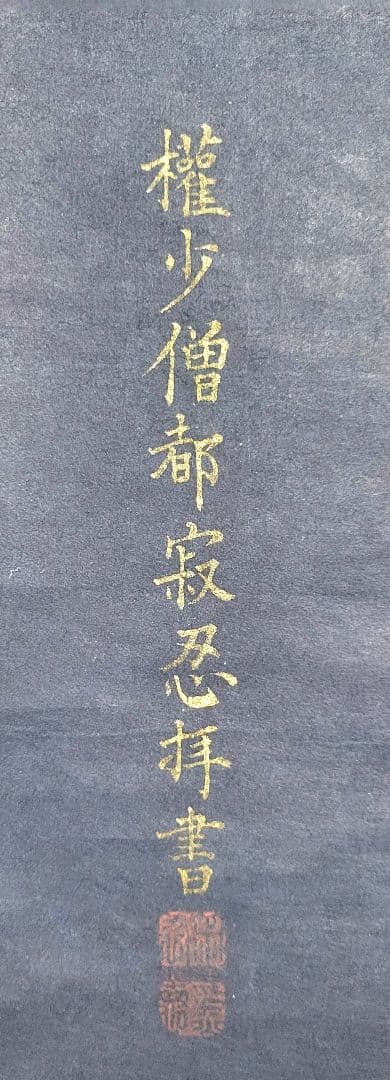 權少僧都寂忍拝書